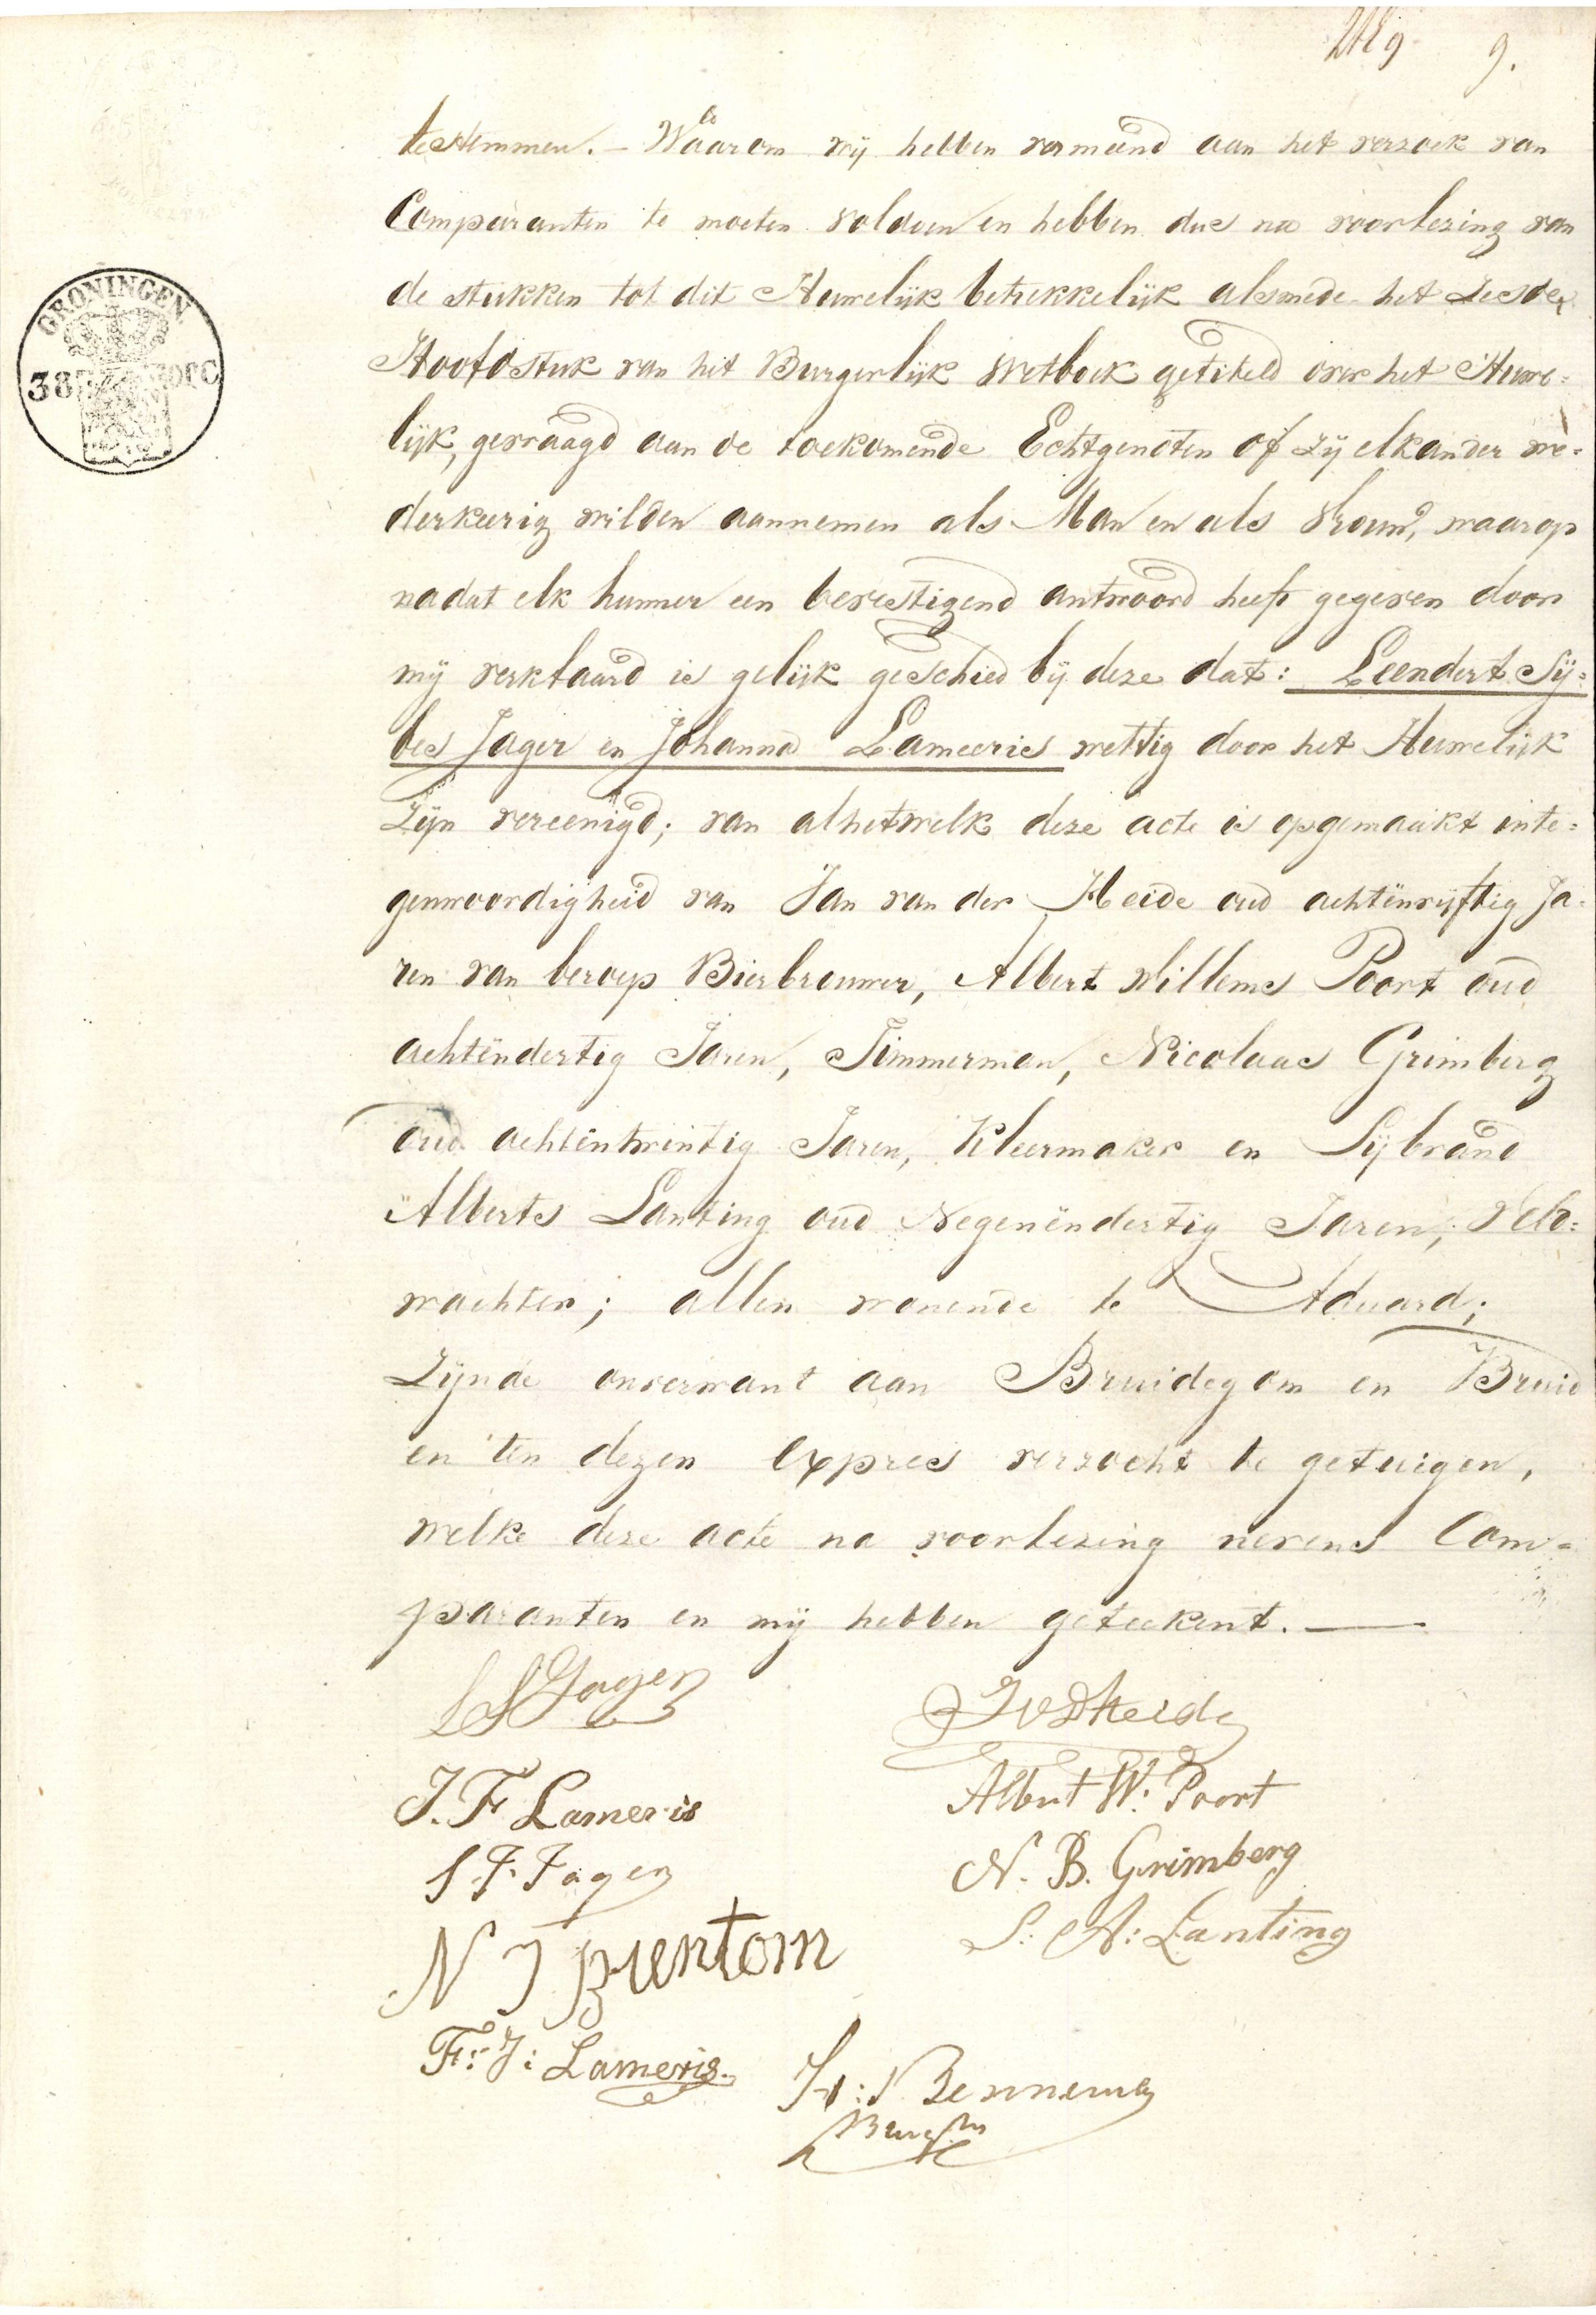 9.
te stemmen. - Waarom wij hebben vermeend aan het verzoek van
Comparanten te moeten voldoen en hebben dus na voorlezing van
de stukken tot dit Huwelijk betrekkelijk alsmede het Zesde
Hoofdstuk van het Burgerlijk Wetboek getiteld over het Huwe=
lijk, gevraagd aan de toekomende Echtgenoten of zij elkander we=
derkeerig wilden aannemen als Man en als Vrouw, waarop
nadat elk hunner een bevestigend antwoord heeft gegeven door
mij verklaard is gelijk geschied bij deze dat: Leendert Sij=
bes Jager en Johanna Lameeries wettig door het Huwelijk
Zijn vereenigd; van alhetwelk deze acte is opgemaakt inte=
genwoordigheid van Jan van der Heide oud achtënvijftig Ja=
ren van beroep Bierbrouwer, Albert Willems Poort oud
achtëndertig Jaren, Timmerman, Nicolaas Grimberg
oud achtëntwintig Jaren, Kleermaker en Sijbrand
Alberts Lanting oud Negenëndertig Jaren, Veld=
wachter; allen wonende te Aduard;
Zijnde onverwant aan Bruidegom en Bruid
en ten dezen expres verzocht te getuigen,
welke deze acte na voorlezing nevens Com=
paranten en mij hebben geteekent.
GRONINGEN
38
L S Jager
J v D Heide
J. F Lameris
Albert W: Poort
S. F. Jager
N. B. Grimberg
S: A: Lanting
N J Buntom
F: J: Lameris.
Bennema
Burgm